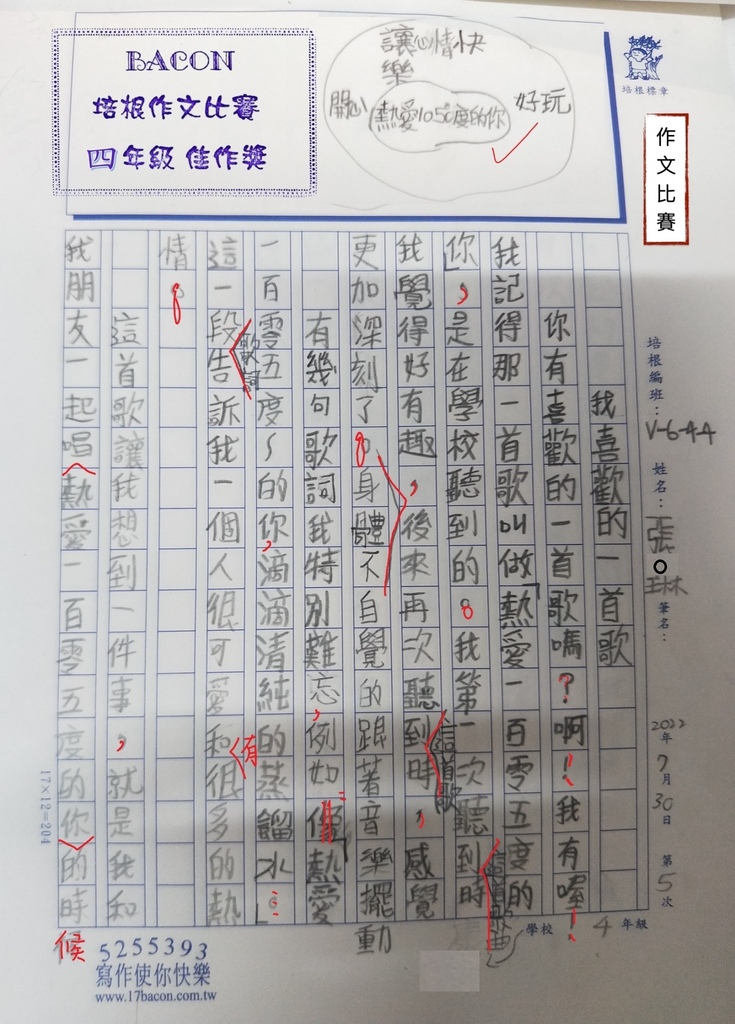 BACON
培根作文比賽
四年級 佳作獎
讓心情快
樂
開心
熱愛105°度的你
好玩
培根標章
作文比賽
培根編班：V-6-44
姓名：張○琳
筆名：
2022年7月30日 第5次
學校 4年級
我喜歡的一首歌
你有喜歡的一首歌嗎？啊！我有喔！
我記得那一首歌叫做「熱愛一百零五度的
你」，是在學校聽到的。我第一次聽到這首歌曲時
我覺得好有趣，後來再次聽到這首歌時，感覺
更加深刻了。身體不自覺的跟著音樂擺動
有幾句歌詞我特別難忘，例如：「熱愛
一百零五度～的你，滴滴清純的蒸餾水」…。
這一段歌詞告訴我一個人很可愛和有很多的熱
情。
這首歌讓我想到一件事，就是我和
我朋友一起唱熱愛一百零五度的你的時候
17×12=204
5255393
寫作使你快樂
www.17bacon.com.tw